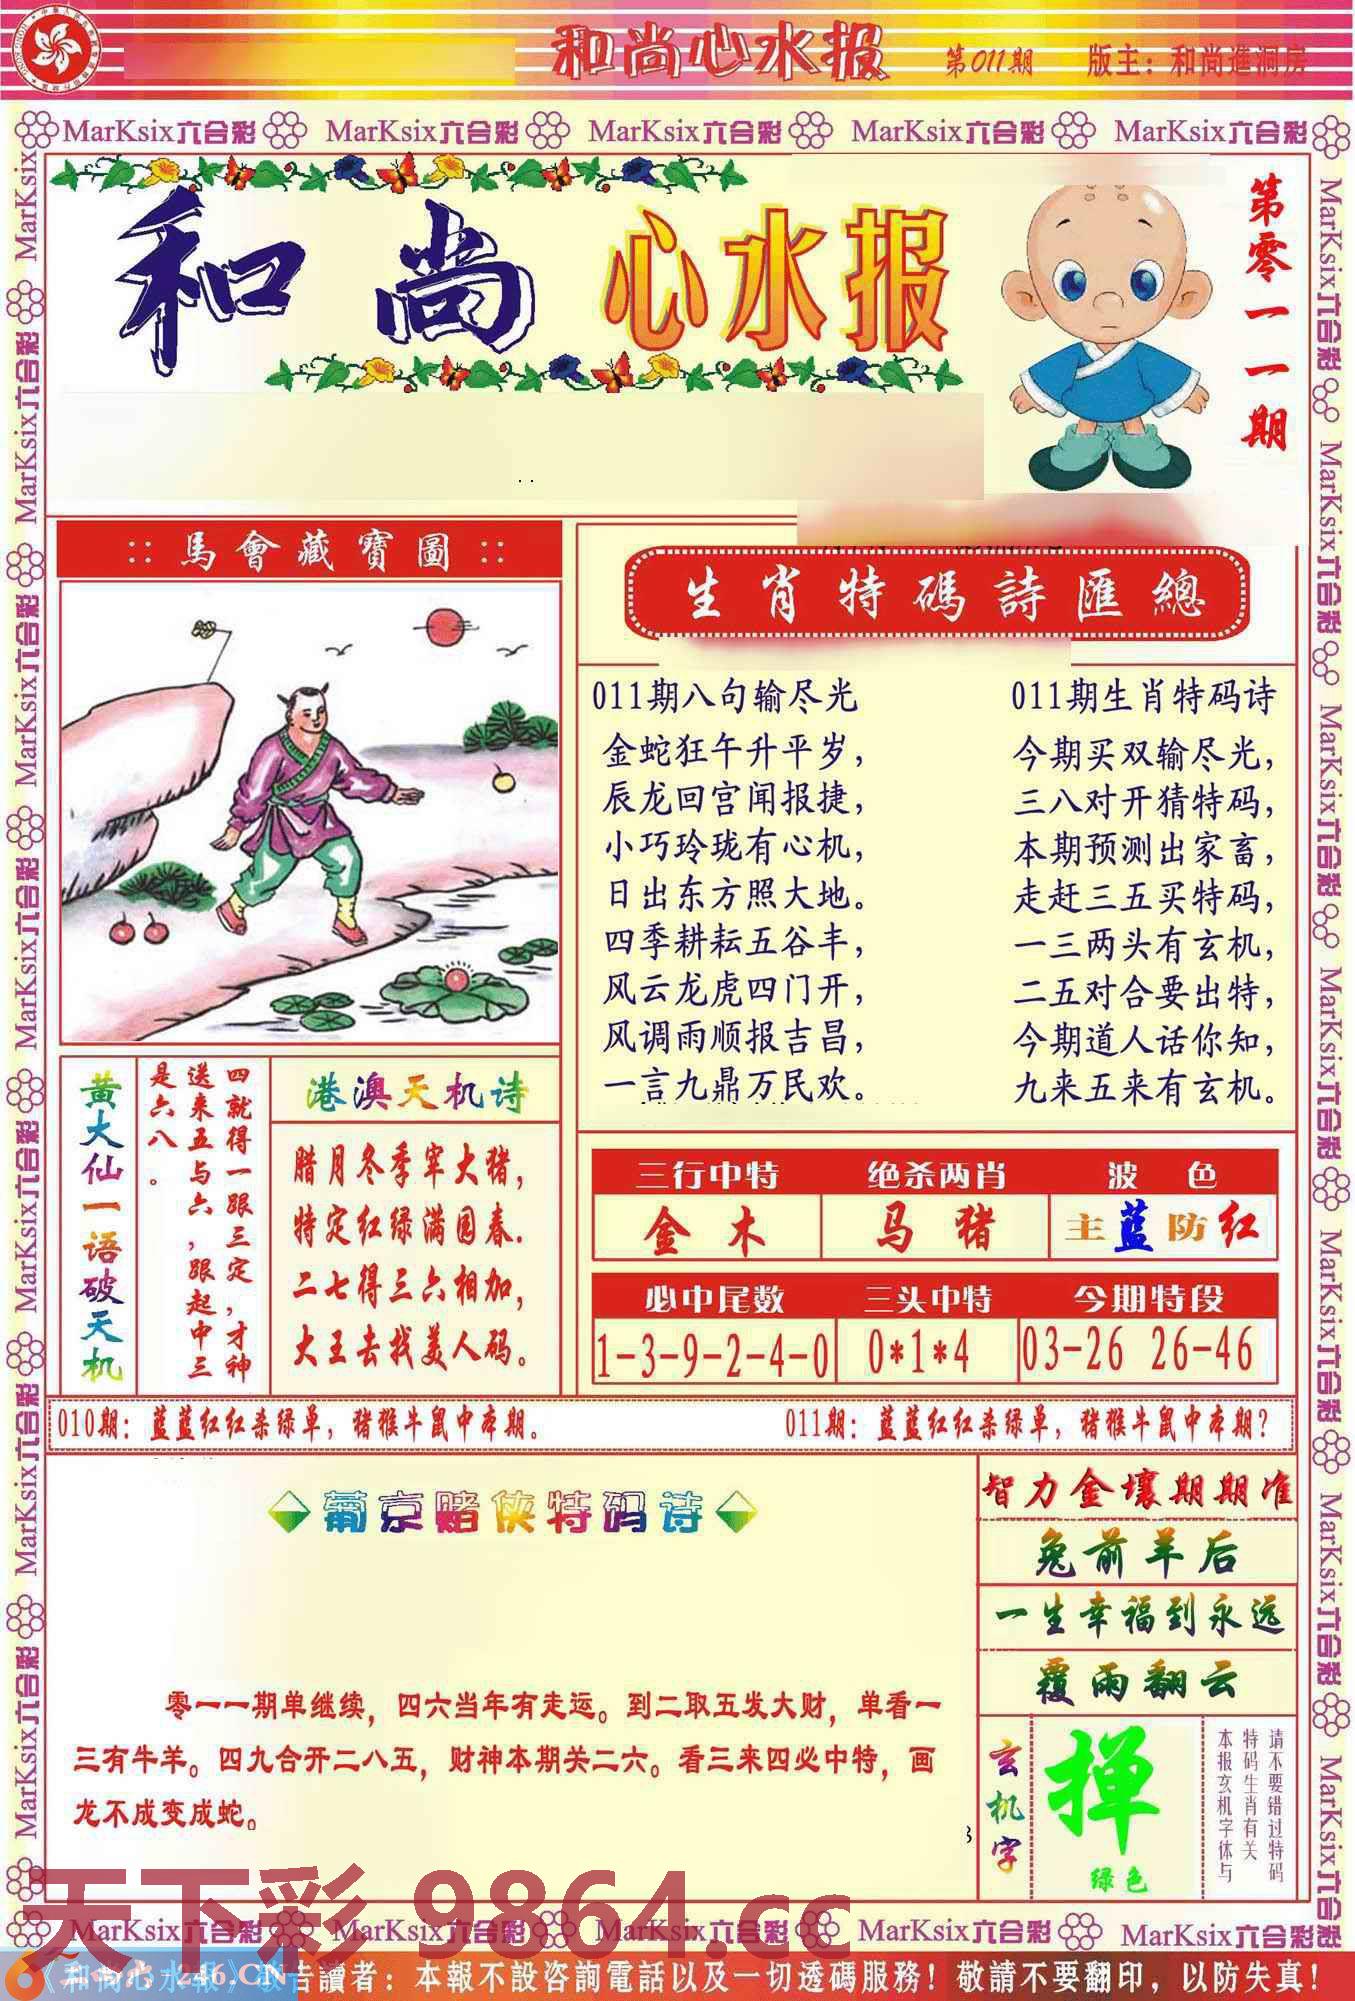 和尚心水报
第011期
版主：和尚進洞房
MarKsix六合彩 MarKsix六合彩 MarKsix六合彩 MarKsix六合彩 MarKsix六合彩
和尚心水报
第零一一期
馬會藏寶圖
生肖特碼詩匯總
011期八句输尽光
金蛇狂午升平岁，
辰龙回宫闻报捷，
小巧玲珑有心机，
日出东方照大地。
四季耕耘五谷丰，
风云龙虎四门开，
风调雨顺报吉昌，
一言九鼎万民欢。
011期生肖特码诗
今期买双输尽光，
三八对开猜特码，
本期预测出家畜，
走赶三五买特码，
一三两头有玄机，
二五对合要出特，
今期道人话你知，
九来五来有玄机。
黄大仙一语破天机
四就得一跟三定，才神
送来五与六，跟起中三
是六八。
港澳天机诗
腊月冬季宰大猪，
特定红绿满园春.
二七得三六相加，
大王去找美人码。
三行中特 绝杀两肖 波色
金木 马猪 主蓝防红
必中尾数 三头中特 今期特段
1-3-9-2-4-0 0*1*4 03-26 26-46
010期：蓝蓝红红杀绿单，猪猴牛鼠中本期。
011期：蓝蓝红红杀绿单，猪猴牛鼠中本期？
葡京赌侠特码诗
零一一期单继续，四六当年有走运。到二取五发大财，单看一
三有牛羊。四九合开二八五，财神本期关二六。看三来四必中特，画
龙不成变成蛇。
智力金壤期期准
兔前羊后
一生幸福到永远
覆雨翻云
玄机字
掸
绿色
请不要错过特码
特码生肖有关
本报玄机字体与
天下彩 9864.cc
MarKsix六合彩 MarKsix六合彩 MarKsix六合彩 MarKsix六合彩 MarKsix六合彩
246.CN
告讀者：本報不設咨詢電話以及一切透碼服務！敬請不要翻印，以防失真！